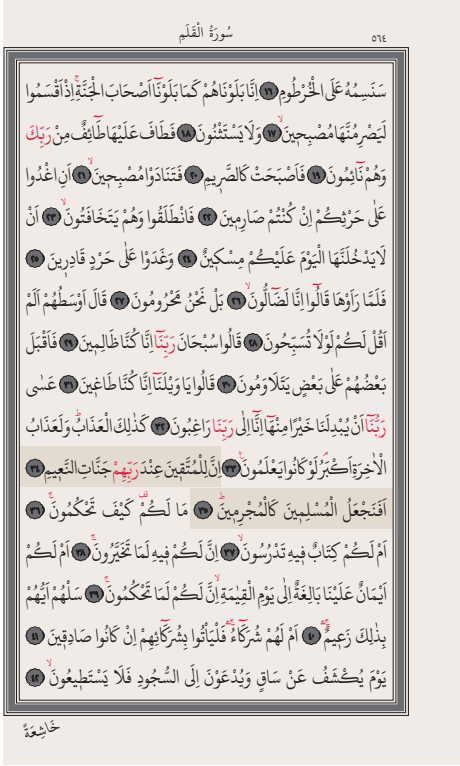 سُورَةُ الْقَلَمِ ٥٦٤
سَنَسِمُهُ عَلَى الْخُرْطُومِ ﴿١٦﴾ اِنَّا بَلَوْنَاهُمْ كَمَا بَلَوْنَٓا اَصْحَابَ الْجَنَّةِۚ اِذْ اَقْسَمُوا
لَيَصْرِمُنَّهَا مُصْبِحٖينَۙ ﴿١٧﴾ وَلَا يَسْتَثْنُونَ ﴿١٨﴾ فَطَافَ عَلَيْهَا طَٓائِفٌ مِنْ رَبِّكَ
وَهُمْ نَٓائِمُونَ ﴿١٩﴾ فَاَصْبَحَتْ كَالصَّرٖيمِۙ ﴿٢٠﴾ فَتَنَادَوْا مُصْبِحٖينَۙ ﴿٢١﴾ اَنِ اغْدُوا
عَلٰى حَرْثِكُمْ اِنْ كُنْتُمْ صَارِمٖينَ ﴿٢٢﴾ فَانْطَلَقُوا وَهُمْ يَتَخَافَتُونَۙ ﴿٢٣﴾ اَنْ
لَا يَدْخُلَنَّهَا الْيَوْمَ عَلَيْكُمْ مِسْكٖينٌ ﴿٢٤﴾ وَغَدَوْا عَلٰى حَرْدٍ قَادِرٖينَ ﴿٢٥﴾
فَلَمَّا رَاَوْهَا قَالُٓوا اِنَّا لَضَٓالُّونَۙ ﴿٢٦﴾ بَلْ نَحْنُ مَحْرُومُونَ ﴿٢٧﴾ قَالَ اَوْسَطُهُمْ اَلَمْ
اَقُلْ لَكُمْ لَوْلَا تُسَبِّحُونَ ﴿٢٨﴾ قَالُوا سُبْحَانَ رَبِّنَٓا اِنَّا كُنَّا ظَالِمٖينَ ﴿٢٩﴾ فَاَقْبَلَ
بَعْضُهُمْ عَلٰى بَعْضٍ يَتَلَاوَمُونَ ﴿٣٠﴾ قَالُوا يَا وَيْلَنَٓا اِنَّا كُنَّا طَاغٖينَ ﴿٣١﴾ عَسٰى
رَبُّنَٓا اَنْ يُبْدِلَنَا خَيْرًا مِنْهَٓا اِنَّٓا اِلٰى رَبِّنَا رَاغِبُونَ ﴿٣٢﴾ كَذٰلِكَ الْعَذَابُۜ وَلَعَذَابُ
الْاٰخِرَةِ اَكْبَرُۢ لَوْ كَانُوا يَعْلَمُونَ۟ ﴿٣٣﴾ اِنَّ لِلْمُتَّقٖينَ عِنْدَ رَبِّهِمْ جَنَّاتِ النَّعٖيمِ ﴿٣٤﴾
اَفَنَجْعَلُ الْمُسْلِمٖينَ كَالْمُجْرِمٖينَۜ ﴿٣٥﴾ مَا لَكُمْ۠ كَيْفَ تَحْكُمُونَۚ ﴿٣٦﴾
اَمْ لَكُمْ كِتَابٌ فٖيهِ تَدْرُسُونَۙ ﴿٣٧﴾ اِنَّ لَكُمْ فٖيهِ لَمَا تَخَيَّرُونَۚ ﴿٣٨﴾ اَمْ لَكُمْ
اَيْمَانٌ عَلَيْنَا بَالِغَةٌ اِلٰى يَوْمِ الْقِيٰمَةِۙ اِنَّ لَكُمْ لَمَا تَحْكُمُونَۚ ﴿٣٩﴾ سَلْهُمْ اَيُّهُمْ
بِذٰلِكَ زَعٖيمٌۚۛ ﴿٤٠﴾ اَمْ لَهُمْ شُرَكَٓاءُۚۛ فَلْيَأْتُوا بِشُرَكَٓائِهِمْ اِنْ كَانُوا صَادِقٖينَ ﴿٤١﴾
يَوْمَ يُكْشَفُ عَنْ سَاقٍ وَيُدْعَوْنَ اِلَى السُّجُودِ فَلَا يَسْتَطٖيعُونَۙ ﴿٤٢﴾
خَاشِعَةً